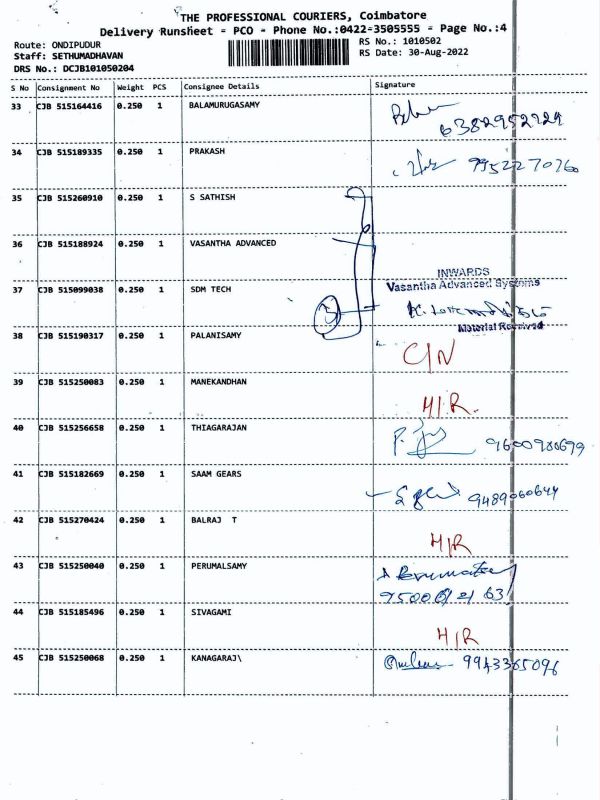 THE PROFESSIONAL COURIERS, Coimbatore
Delivery Runsheet = PCO = Phone No.:0422-3505555 = Page No.:4
Route: ONDIPUDUR
RS No.: 1010502
Staff: SETHUMADHAVAN
RS Date: 30-Aug-2022
DRS No.: DCJB101050204
S No Consignment No Weight PCS Consignee Details Signature
33 CJB 515164416 0.250 1 BALAMURUGASAMY
6382952929
34 CJB 515189335 0.250 1 PRAKASH
35 CJB 515260910 0.250 1 S SATHISH
36 CJB 515188924 0.250 1 VASANTHA ADVANCED
INWARDS
37 CJB 515099038 0.250 1 SDM TECH Vasantha Advanced Systems
Material Received
38 CJB 515190317 0.250 1 PALANISAMY
C/N
39 CJB 515250083 0.250 1 MANEKANDHAN
H/R.
40 CJB 515256658 0.250 1 THIAGARAJAN
9600980699
41 CJB 515182669 0.250 1 SAAM GEARS
9489060644
42 CJB 515270424 0.250 1 BALRAJ T
H/R
43 CJB 515250040 0.250 1 PERUMALSAMY
44 CJB 515185496 0.250 1 SIVAGAMI
H/R
45 CJB 515250068 0.250 1 KANAGARAJ\ 9943365096